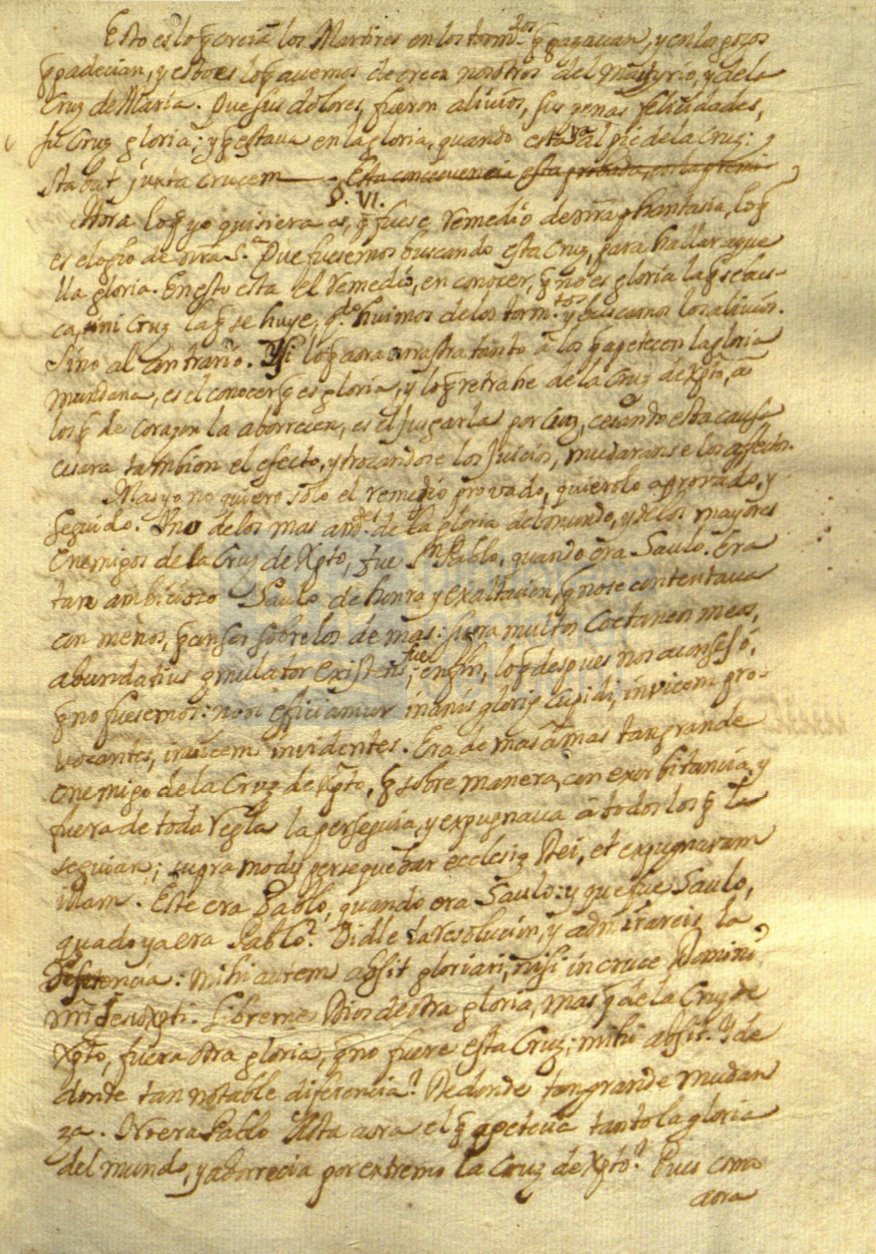 Esto es lo q̃ creiã los Martires en los torm.tos q̃ gozavan, y en los gozos
q̃ padecian, y esto es lo q̃ avemos de creer nosotros del Martyrio, y de la
Cruz de Maria. Que sus dolores, fueron alivios, sus penas felicidades,
su Cruz gloria; y q̃ estava en la gloria, quando estava al pie de la Cruz:
stabat juxta crucem — Esta consequencia esta probada, con la premi-
§. VI.
Aora lo q̃ yo quisiera es, q̃ fuese remedio de nrã phantasia, lo q̃
es elogio de nrã S.ª Que fuesemos buscando esta Cruz, para hallar aque
lla gloria. En esto esta el remedio, en conocer, q̃ no es gloria la q̃ se bus-
ca, ni Cruz la q̃ se huye, q.do huimos de los torm.tos y buscamos los alivios.
Sino al contrario. Si lo q̃ aora arrastra tanto à los q̃ apetecen la gloria
mundana, es el conocer q̃ es gloria, y lo q̃ retrahe de la Cruz de Xp̃to, à
los q̃ de corazon la aborrecen, es el juzgarla por Cruz, cesando esta causa
cesara tambien el efecto, y trocandose los juicios, mudaranse los affectos.
Mas yo no quiero solo el remedio provado, quierolo aprovado, y
seguido. Uno de los mas am.tes de la gloria del mundo, y de los mayores
Enemigos de la Cruz de Xp̃to, fue Sn Pablo, quando era Saulo. Era
tan ambicioso Saulo de honra y exaltacion, q̃ no se contentava
con menos, q̃ con ser sobre los de mas: supra multos Coetaneos meos,
abundatius ęmulator existens; fue enfin, lo q̃ despues nos aconsejó,
q̃ no fuesemos: non efficiamur inanis glorię cupidi, invicem pro-
vocantes, invicem invidentes. Era de mas à mas tan grande
enemigo de la Cruz de Xp̃to, q̃ sobre manera, con exorbitancia, y
fuera de toda regla la perseguia, y expugnava à todos los q̃ la
seguian; supra modũ persequebar ecclesię Dei, et expugnavam
illam. Este era Pablo, quando era Saulo: y que fue Saulo,
quado ya era Pablo? Oidle la resolucion, y admirareis la
diferencia: Mihi autem absit gloriari, nisi in cruce Domini
nrĩ Jesu Xpti. Libreme Dios de otra gloria, mas q̃ de la Cruz de
Xp̃to, fuera otra gloria, q̃ no fuere esta Cruz; mihi absit. Y de
donde tan notable diferencia? De donde tan grande mudan
za. No era Pablo asta aora el q̃ apetecia tanto la gloria
del mundo, y aborrecia por extremo la Cruz de Xp̃to? Pues como
aora